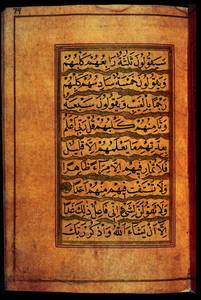 سَيَقُولُونَ ثَلٰثَةٌ رَابِعُهُمْ كَلْبُهُمْ
وَيَقُولُونَ خَمْسَةٌ سَادِسُهُمْ كَلْبُهُمْ
رَجْمًا بِالْغَيْبِ وَيَقُولُونَ سَبْعَةٌ
وَثَامِنُهُمْ كَلْبُهُمْ قُلْ رَبِّي أَعْلَمُ
بِعِدَّتِهِمْ مَا يَعْلَمُهُمْ إِلَّا قَلِيلٌ
فَلَا تُمَارِ فِيهِمْ إِلَّا مِرَاءً ظَاهِرًا
وَلَا تَسْتَفْتِ فِيهِمْ مِنْهُمْ أَحَدًا
وَلَا تَقُولَنَّ لِشَيْءٍ إِنِّي فَاعِلٌ ذَلِكَ غَدًا
إِلَّا أَنْ يَشَاءَ اللَّهُ وَاذْكُرْ رَبَّكَ